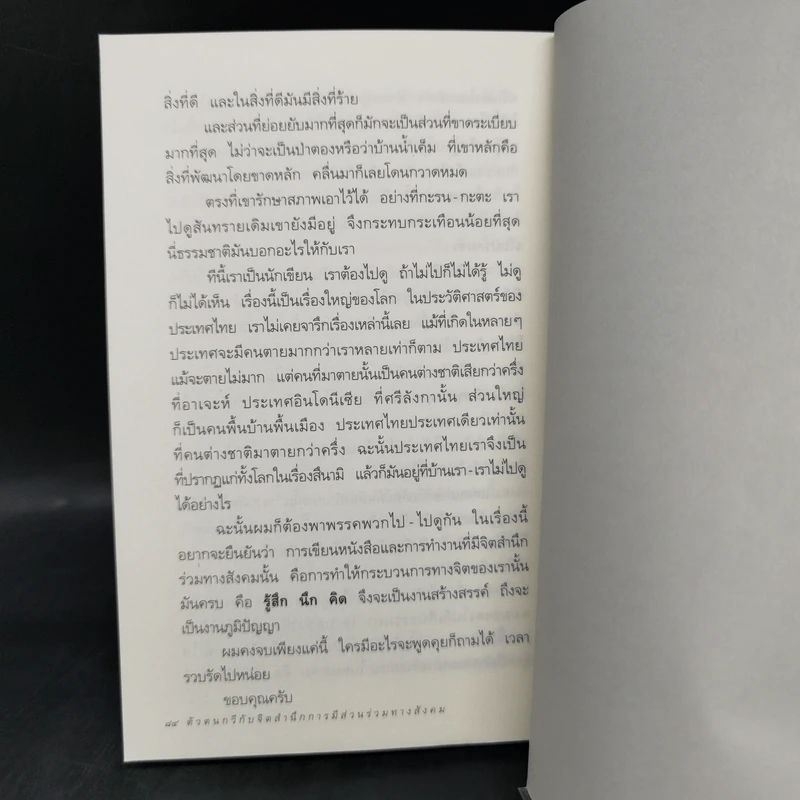 สิ่งที่ดี และในสิ่งที่ดีมันมีสิ่งที่ร้าย
และส่วนที่ย่อยยับมากที่สุดก็มักจะเป็นส่วนที่ขาดระเบียบ
มากที่สุด ไม่ว่าจะเป็นป่าตองหรือว่าบ้านน้ำเค็ม ที่เขาหลักคือ
สิ่งที่พัฒนาโดยขาดหลัก คลื่นมาก็เลยโดนกวาดหมด
ตรงที่เขารักษาสภาพเอาไว้ได้ อย่างที่กะรน-กะตะ เรา
ไปดูสันทรายเดิมเขายังมีอยู่ จึงกระทบกระเทือนน้อยที่สุด
นี่ธรรมชาติมันบอกอะไรให้กับเรา
ทีนี้เราเป็นนักเขียน เราต้องไปดู ถ้าไม่ไปก็ไม่ได้รู้ ไม่ดู
ก็ไม่ได้เห็น เรื่องนี้เป็นเรื่องใหญ่ของโลก ในประวัติศาสตร์ของ
ประเทศไทย เราไม่เคยจารึกเรื่องเหล่านี้เลย แม้ที่เกิดในหลายๆ
ประเทศจะมีคนตายมากกว่าเราหลายเท่าก็ตาม ประเทศไทย
แม้จะตายไม่มาก แต่คนที่มาตายนั้นเป็นคนต่างชาติเสียกว่าครึ่ง
ที่อาเจะห์ ประเทศอินโดนีเซีย ที่ศรีลังกานั้น ส่วนใหญ่
ก็เป็นคนพื้นบ้านพื้นเมือง ประเทศไทยประเทศเดียวเท่านั้น
ที่คนต่างชาติมาตายกว่าครึ่ง ฉะนั้นประเทศไทยเราจึงเป็น
ที่ปรากฏแก่ทั้งโลกในเรื่องสึนามิ แล้วก็มันอยู่ที่บ้านเรา-เราไม่ไปดู
ได้อย่างไร
ฉะนั้นผมก็ต้องพาพรรคพวกไป-ไปดูกัน ในเรื่องนี้
อยากจะยืนยันว่า การเขียนหนังสือและการทำงานที่มีจิตสำนึก
ร่วมทางสังคมนั้น คือการทำให้กระบวนการทางจิตของเรานั้น
มันครบ คือ รู้สึก นึก คิด จึงจะเป็นงานสร้างสรรค์ ถึงจะ
เป็นงานภูมิปัญญา
ผมคงจบเพียงแค่นี้ ใครมีอะไรจะพูดคุยก็ถามได้ เวลา
รวบรัดไปหน่อย
ขอบคุณครับ
๘๔ ตัวตนกวีกับจิตสำนึกการมีส่วนร่วมทางสังคม